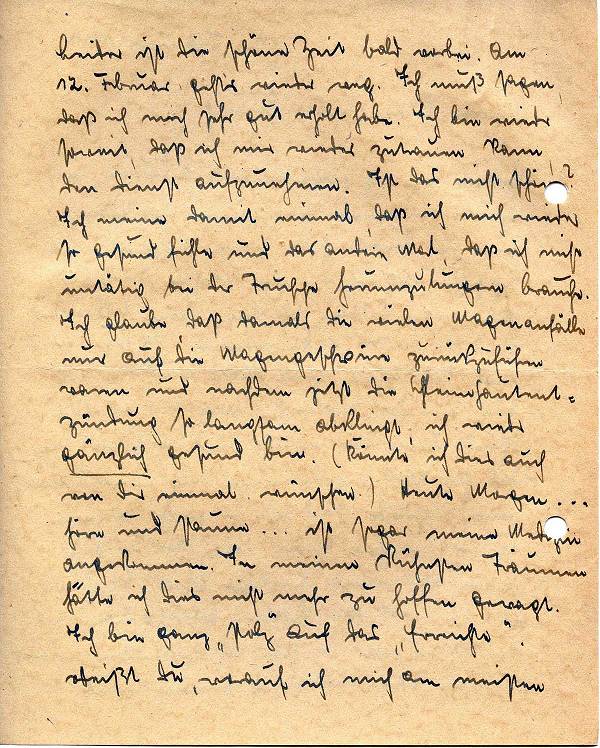 Leider ist die schöne Zeit bald vorbei. Am
12. Februar geht's wieder weg. Ich muß sagen,
daß ich mich sehr gut erholt habe. Ich bin wieder
soweit, daß ich mir wieder zutrauen kann,
den Dienst aufzunehmen. Ist das nicht schön?
Ich meine damit einmal, daß ich mich wieder
so gesund fühle und das andere Mal, daß ich nicht
untätig bei der Truppe herumzulungern brauche.
Ich glaube, daß damals die vielen Magenanfälle
nur auf die Magengeschwüre zurückzuführen
waren und nachdem jetzt die Schleimhautent-
zündung so langsam abklingt, ich wieder
gänzlich gesund bin. (Könnte ich dies auch
von Dir einmal wünschen.) Heute Morgen ...
höre und staune ... ist sogar meine Medizin
angekommen. In meinen kühnsten Träumen
hätte ich dies nicht mehr zu hoffen gewagt.
Ich bin ganz "stolz" auf das "Erreichte".
Weißt Du, worauf ich mich am meisten